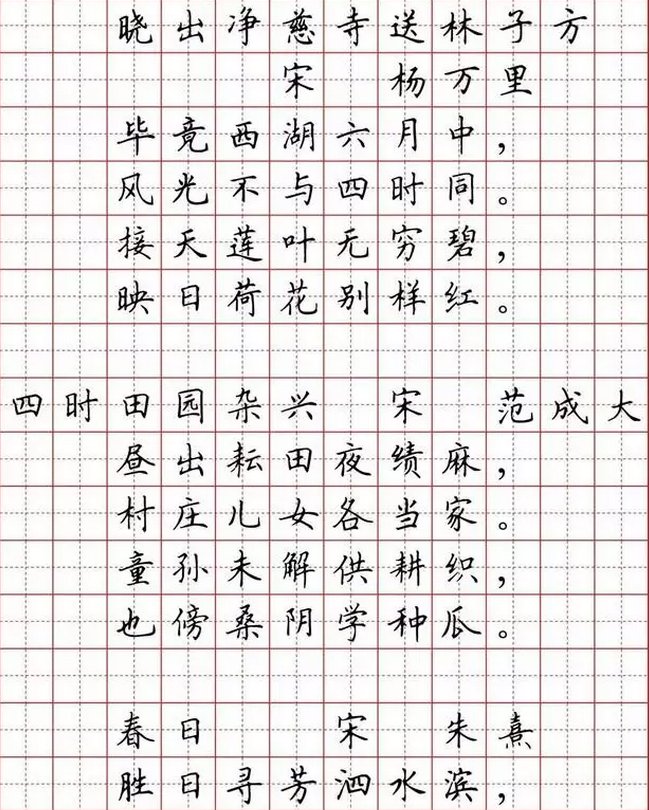 晓出净慈寺送林子方
宋 杨万里
毕竟西湖六月中，
风光不与四时同。
接天莲叶无穷碧，
映日荷花别样红。
四时田园杂兴 宋 范成大
昼出耘田夜绩麻，
村庄儿女各当家。
童孙未解供耕织，
也傍桑阴学种瓜。
春日 宋 朱熹
胜日寻芳泗水滨，